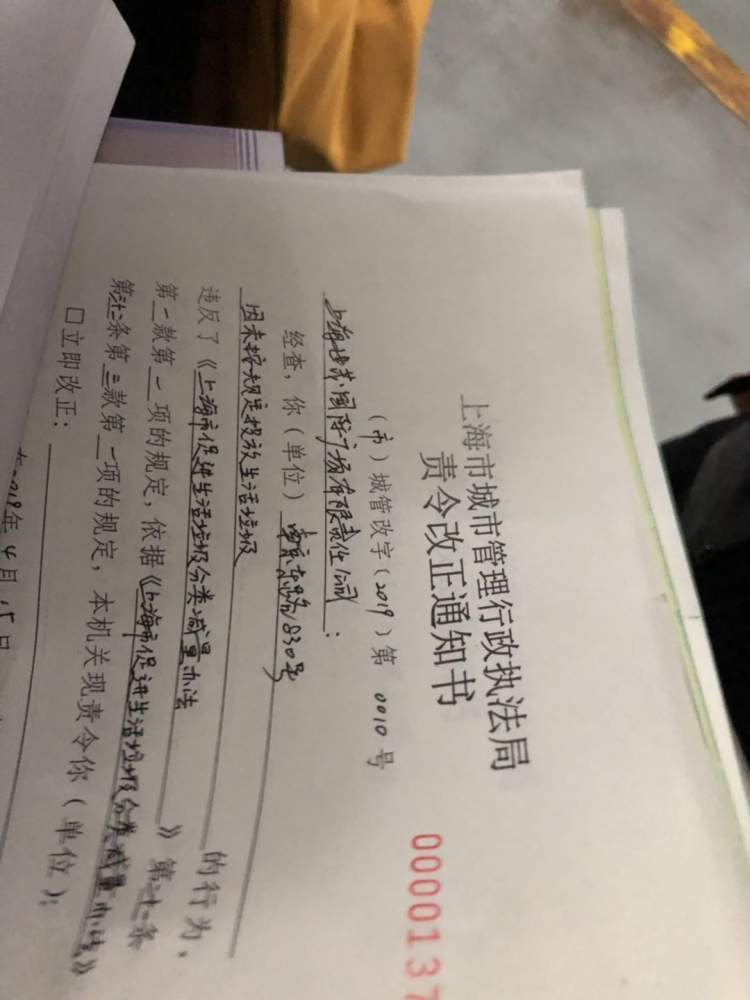 上海市城市管理行政执法局
责令改正通知书
0000137
（市）城管改字（2019）第 0010 号
上海世茂国际广场有限责任公司：
经查，你（单位）南京东路830号
因未按规定投放生活垃圾
的行为，
违反了《上海市促进生活垃圾分类减量办法》第二十二条
第一款第一项的规定，依据《上海市促进生活垃圾分类减量办法》
条第三款第一项的规定，本机关现责令你（单位）：
□立即改正：
2019年4月15日